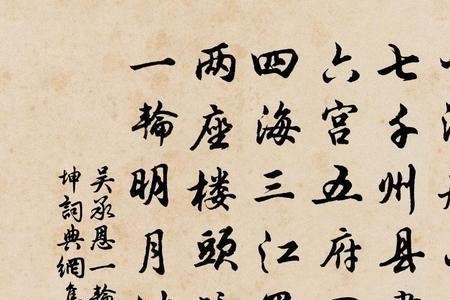 七千州县
六宫五府
四海三江
两座楼頭
一輪明月
吴承恩一輪
坤詞典網